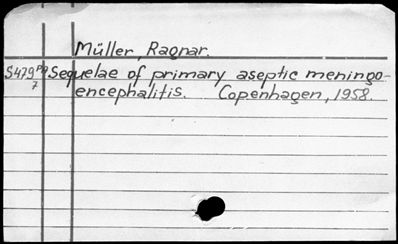 Müller, Ragnar.
S479 Sequelae of primary aseptic meningo-
7 encephalitis. Copenhagen, 1958.